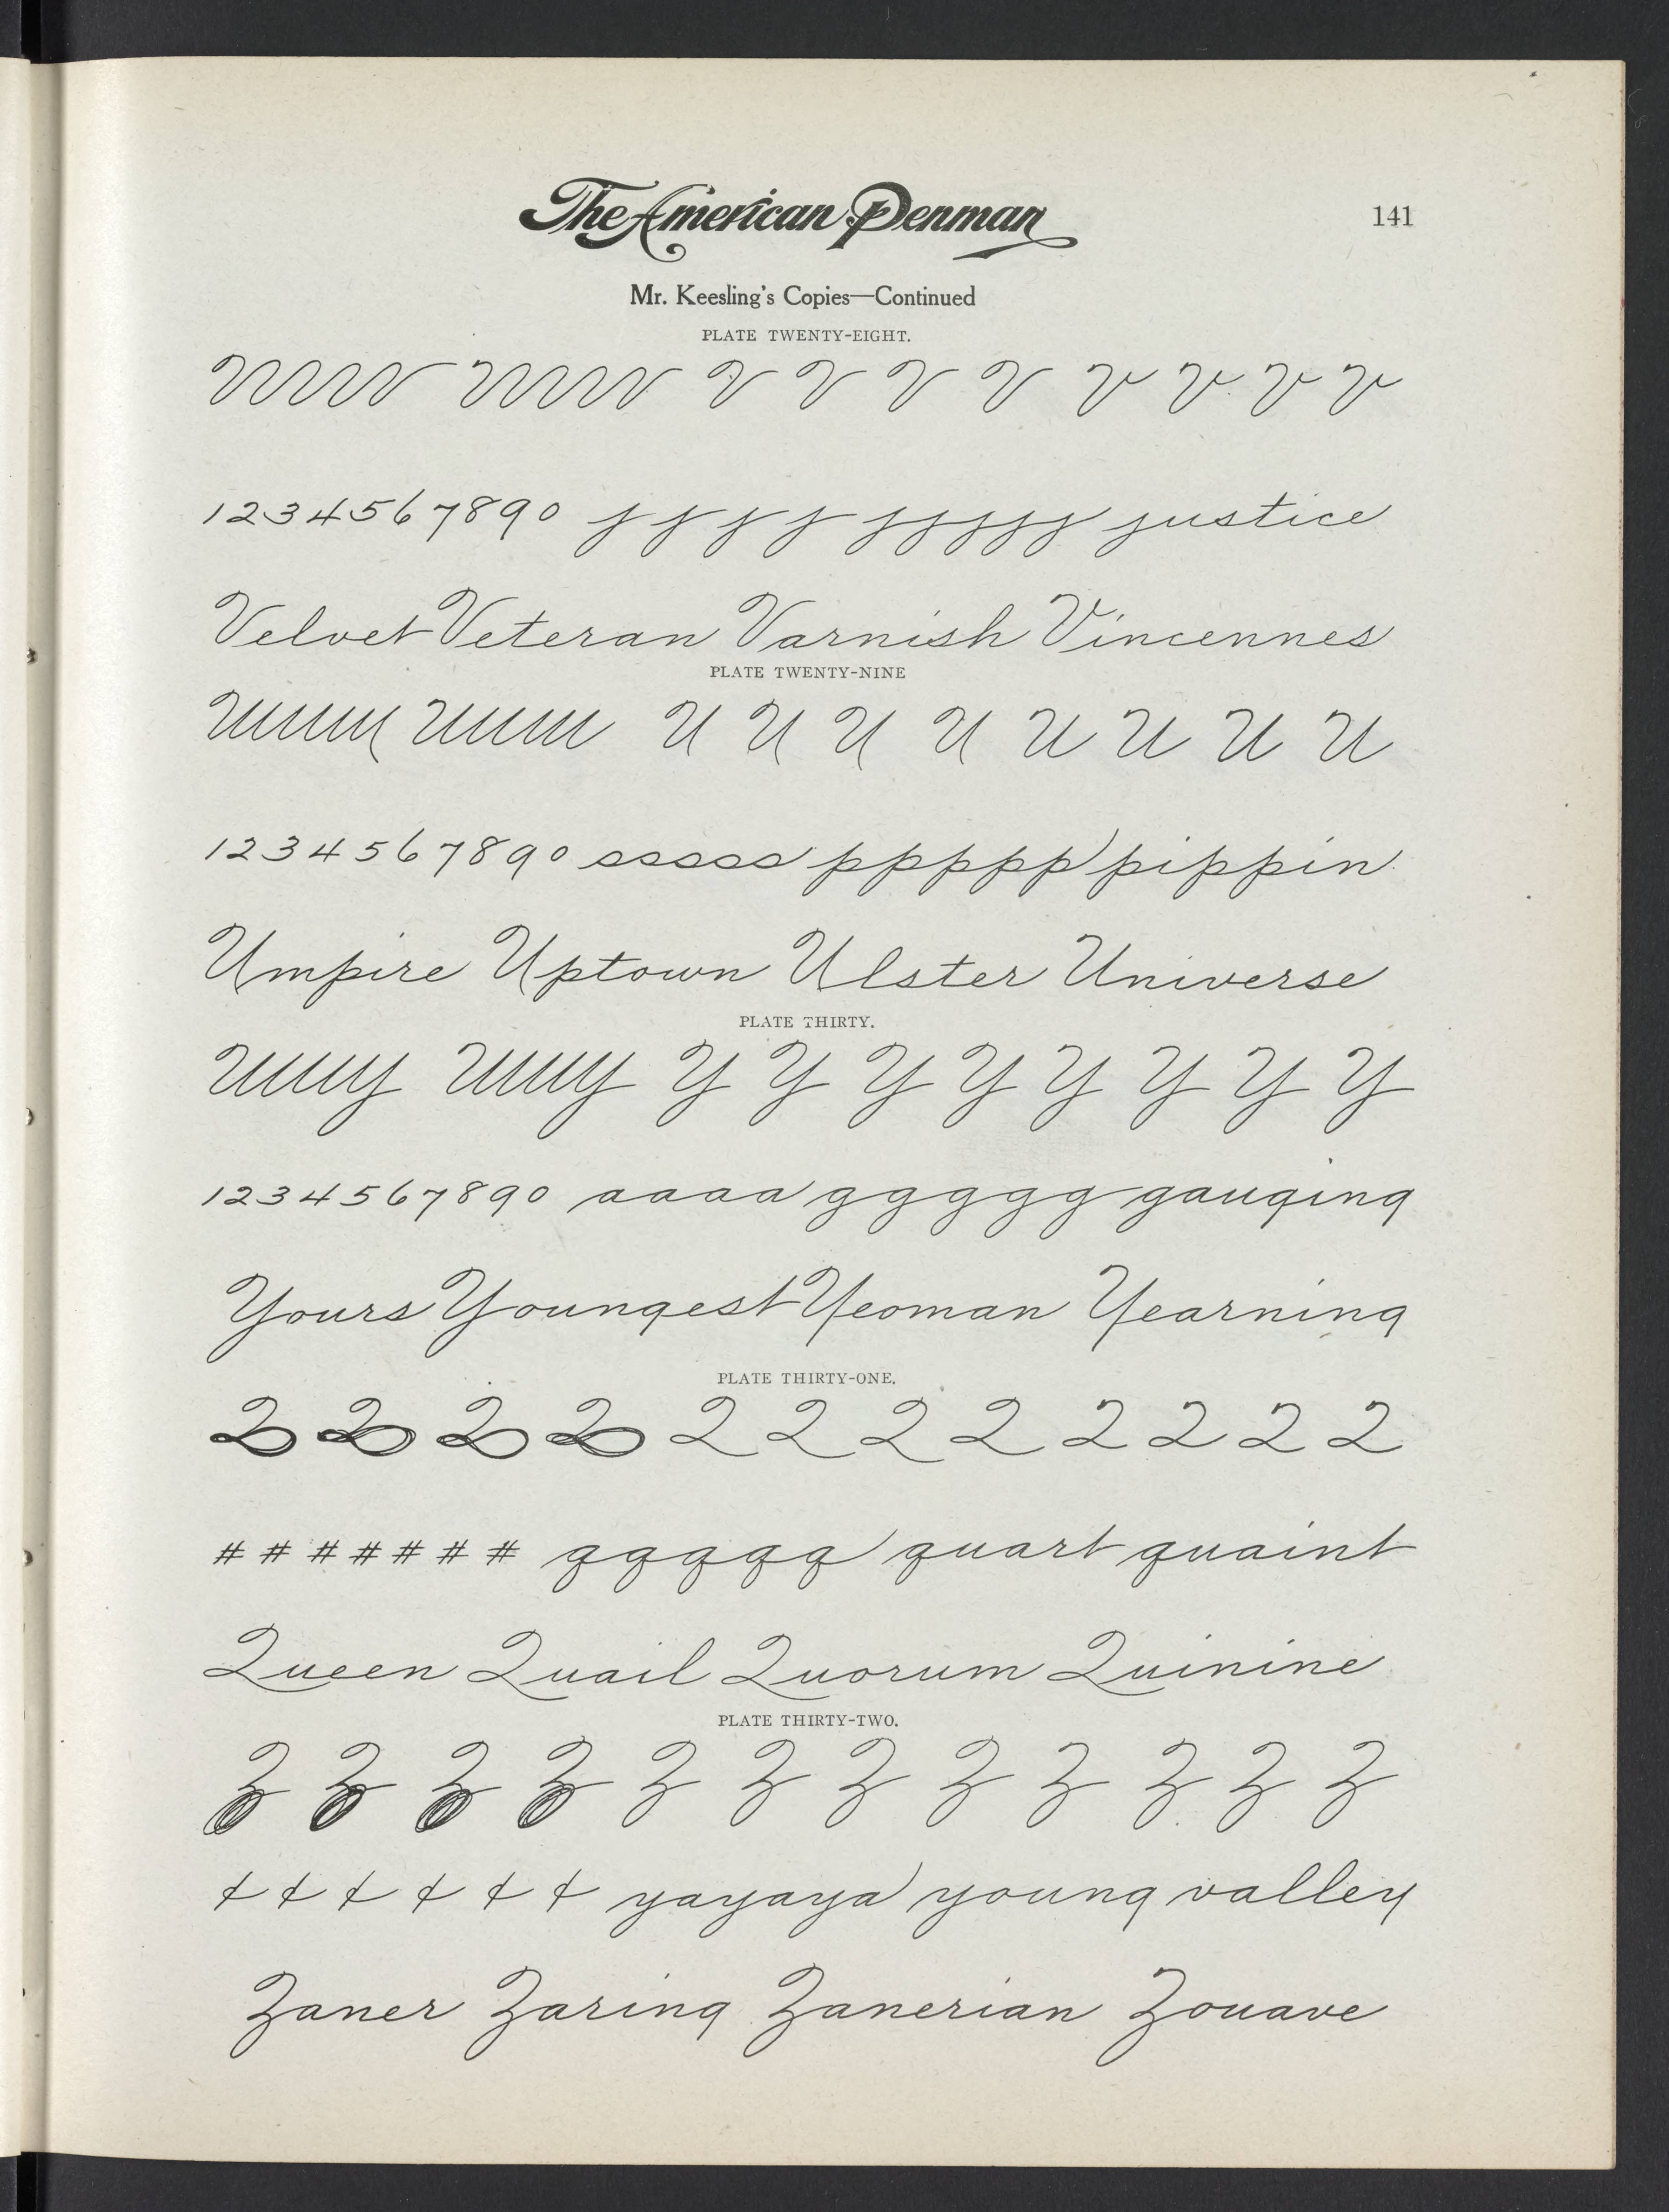 The American Penman
141
Mr. Keesling's Copies—Continued
PLATE TWENTY-EIGHT.
V V V V V V V V
1 2 3 4 5 6 7 8 9 0 j j j j j j j j j justice
Velvet Veteran Varnish Vincennes
PLATE TWENTY-NINE
U U U U U U U U
1 2 3 4 5 6 7 8 9 0 sssss pppppp pippin
Umpire Uptown Ulster Universe
PLATE THIRTY.
Y Y Y Y Y Y Y Y
1 2 3 4 5 6 7 8 9 0 aaaa ggggg gauging
Yours Youngest Yeoman Yearning
PLATE THIRTY-ONE.
Q Q Q Q Q Q Q Q Q Q Q Q
# # # # # # # qqqqq quart quaint
Queen Quail Quorum Quinine
PLATE THIRTY-TWO.
Z Z Z Z Z Z Z Z Z Z Z Z
¢ ¢ ¢ ¢ ¢ ¢ yayaya young valley
Zaner Zaring Zanerian Zouave